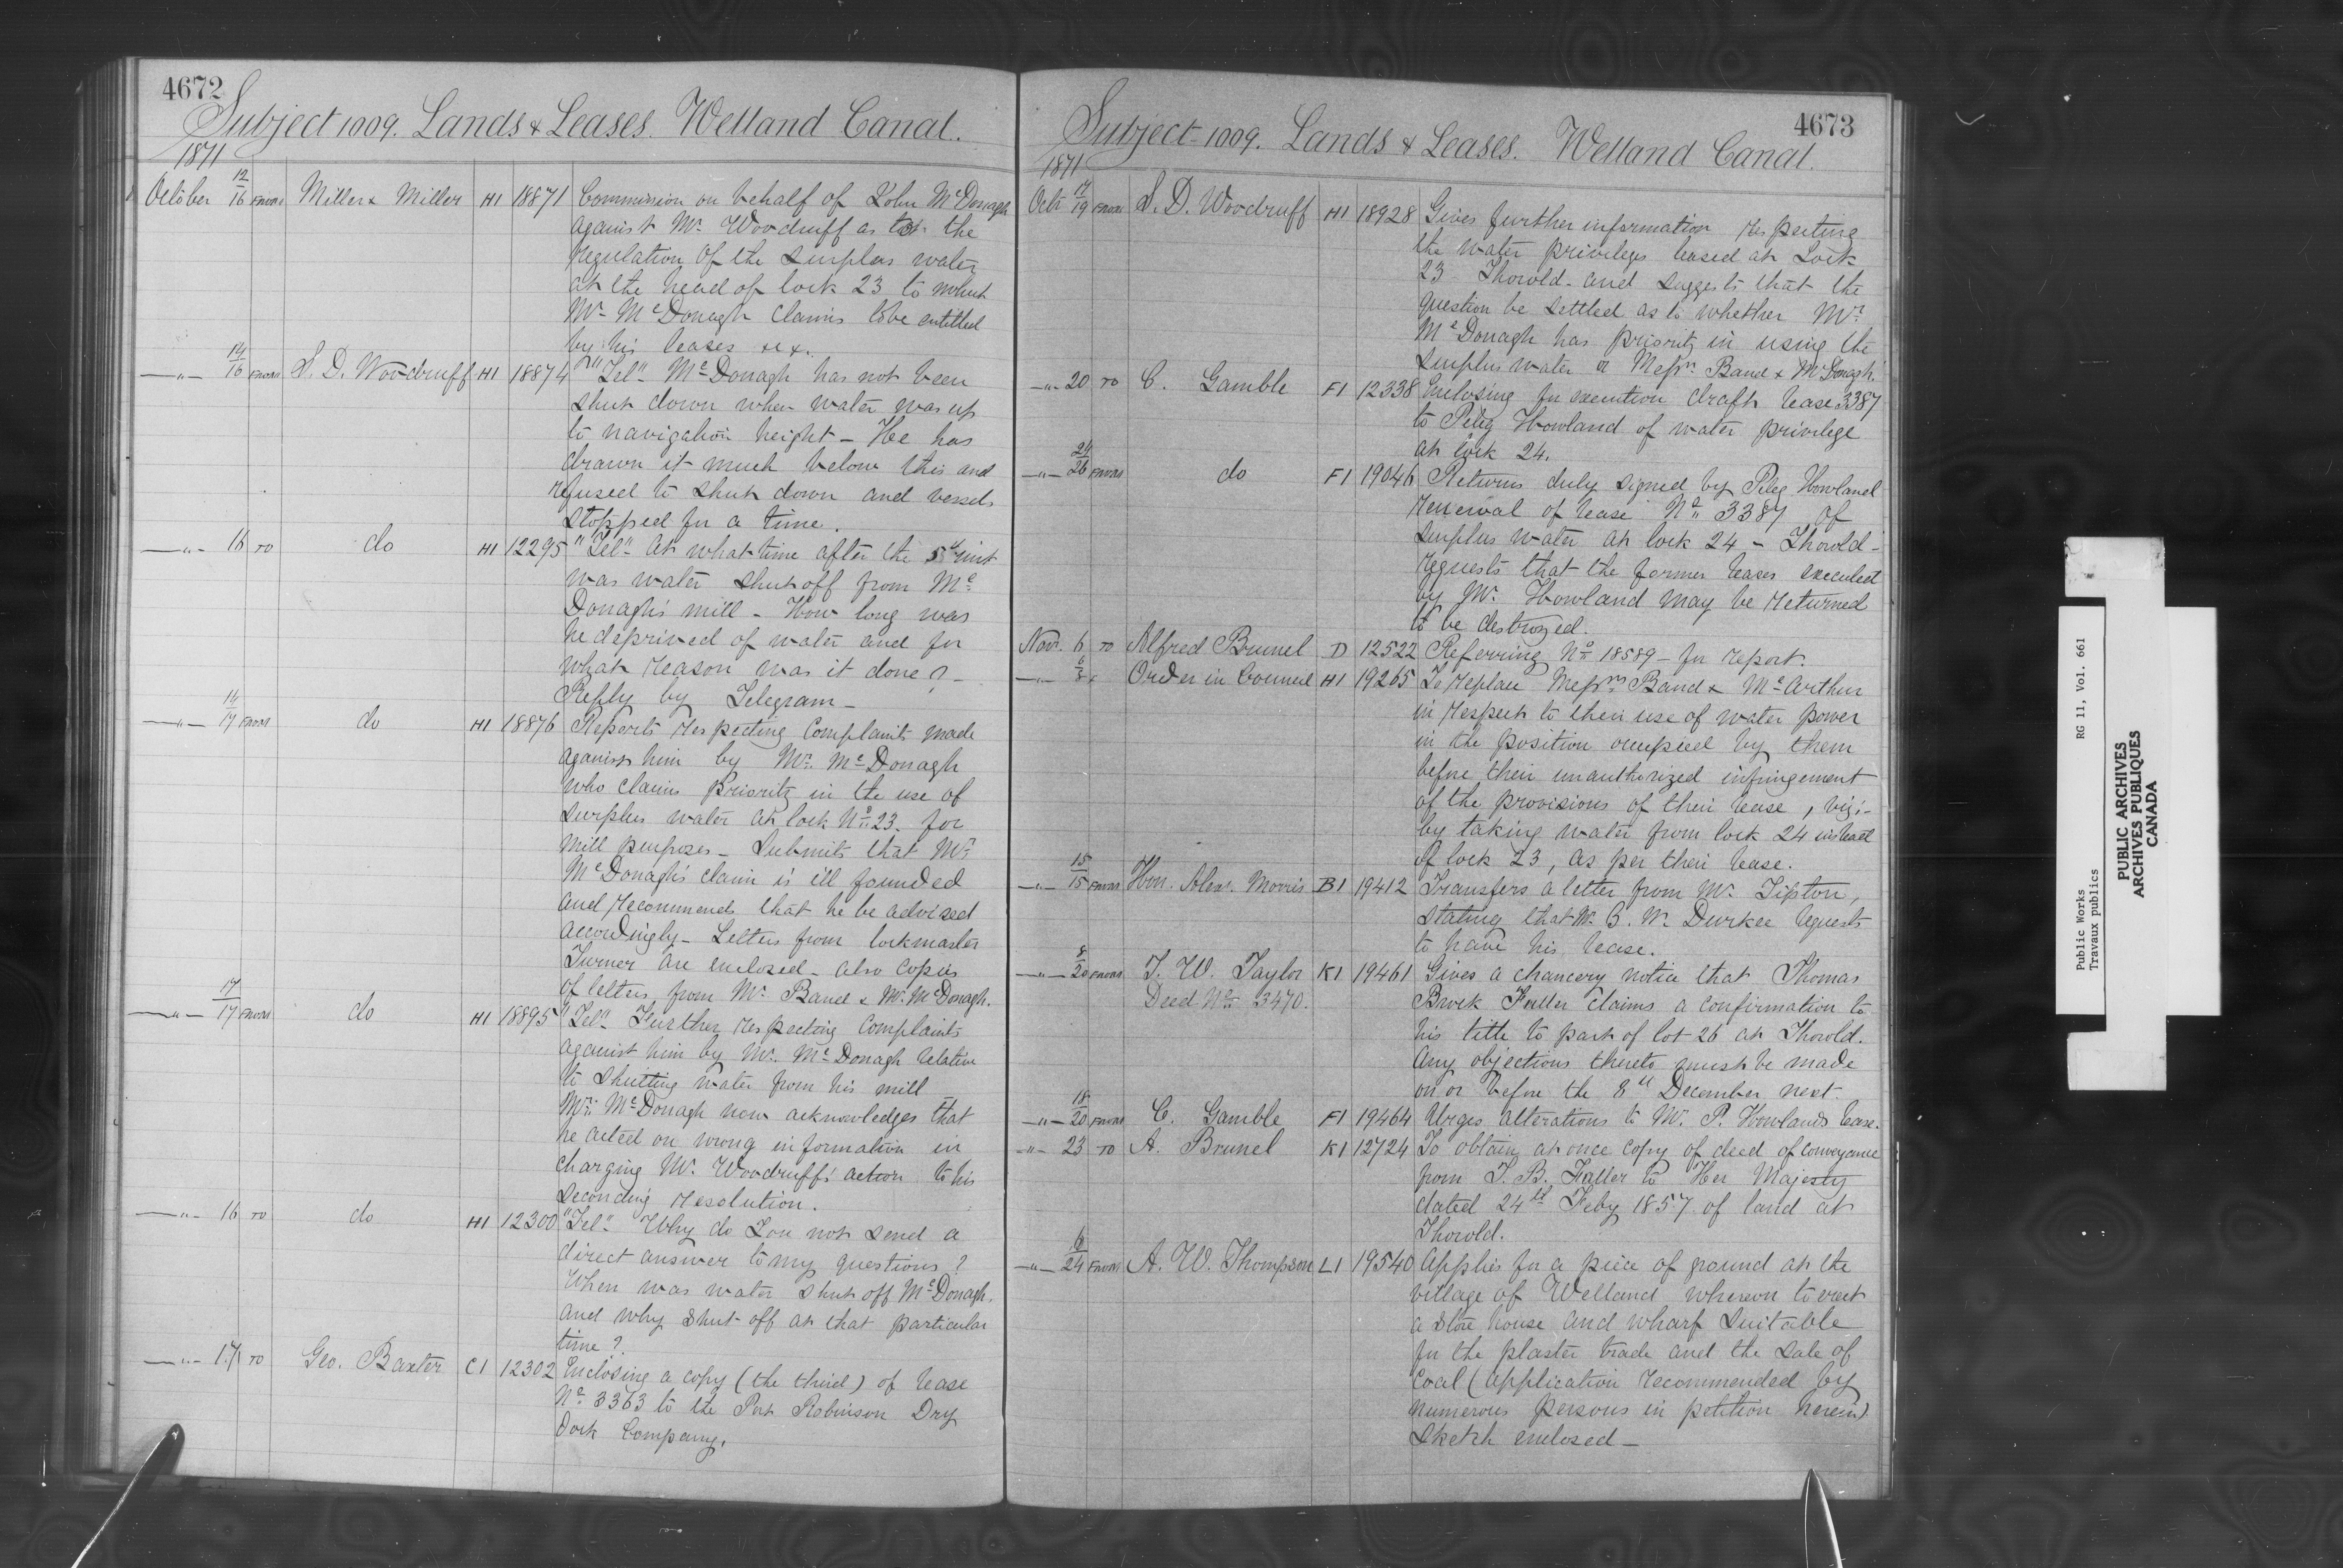 4672
Subject 1009. Lands & Leases. Welland Canal.
1871
October 12/16 FROM Miller & Miller H1 18871 Commission on behalf of John McDonagh
against Mr. Woodruff as to the
regulation of the surplus water
at the head of lock 23 to which
Mr. McDonagh claims to be entitled
by his leases &c.
—"— 14/16 FROM S. D. Woodruff H1 18874 "Tel" McDonagh has not been
shut down when water was up
to navigation height — He has
drawn it much below this and
refused to shut down and vessels
stopped for a time.
—"— 16 TO do H1 12295 "Tel" At what time after the 5th inst
was water shut off from Mc
Donagh's mill — How long was
he deprived of water and for
what reason was it done? —
Reply by Telegram —
—"— 14/17 FROM do H1 18876 Reports respecting complaints made
against him by Mr. McDonagh
who claims priority in the use of
surplus water at lock No. 23. for
mill purposes — Submits that Mr.
McDonagh's claim is ill founded
and recommends that he be advised
accordingly — Letters from lockmaster
Turner are enclosed — also copies
of letters from Mr. Band & Mr. McDonagh.
—"— 17/17 FROM do H1 18895 "Tel" Further respecting complaints
against him by Mr. McDonagh relative
to shutting water from his mill
Mr. McDonagh now acknowledges that
he acted on wrong information in
charging Mr. Woodruff's action to his
seconding resolution.
—"— 16 TO do H1 12300 "Tel" Why do You not send a
direct answer to my questions?
When was water shut off McDonagh.
and why shut off at that particular
time?
—"— 17 TO Geo. Baxter C1 12302 Enclosing a copy (the third) of lease
No. 3363 to the Port Robinson Dry
Dock Company.
4673
Subject 1009. Lands & Leases. Welland Canal.
1871
Octr 17/19 FROM S. D. Woodruff H1 18928 Gives further information respecting
the water privileges leased at Lock
23 Thorold — and suggests that the
question be settled as to whether Mr.
McDonagh has priority in using the
surplus water or Messrs. Band & McDonagh.
—"— 20 TO C. Gamble F1 12338 Enclosing for execution draft lease 3387
to Peleg Howland of water privilege
at lock 24.
—"— 24/26 FROM do F1 19046 Returns duly signed by Peleg Howland
renewal of lease No. 3387 of
surplus water at lock 24 — Thorold —
requests that the former leases executed
by Mr. Howland may be returned
to be destroyed.
Nov. 6 TO Alfred Brunel D 12522 Referring No. 18589 — for report.
—"— 6/8 Order in Council H1 19265 To replace Messrs. Band & McArthur
in respect to their use of water power
in the position occupied by them
before their unauthorized infringement
of the provisions of their lease, viz:—
by taking water from lock 24 instead
of lock 23, as per their lease.
—"— 15/15 FROM Hon. Alex. Morris B1 19412 Transfers a letter from Mr. Tipton,
stating that Mr. B. W. Durkee requests
to have his lease.
—"— 8/20 FROM T. W. Taylor K1 19461 Gives a chancery notice that Thomas
Deed No. 3470. Brock Fuller claims a confirmation to
his title to part of lot 26 at Thorold.
Any objections thereto must be made
on or before the 8th December next.
—"— 18/20 FROM C. Gamble F1 19464 Urges alterations to Mr. P. Howland's lease.
—"— 23 TO A. Brunel K1 12724 To obtain at once copy of deed of conveyance
from T. B. Fuller to Her Majesty
dated 24th Feby 1857 of land at
Thorold.
—"— 6/24 FROM A. W. Thompson L1 19540 Applies for a piece of ground at the
village of Welland whereon to erect
a store house and wharf suitable
for the plaster trade and the sale of
Coal (Application recommended by
numerous persons in petition herein)
Sketch enclosed —
Public Works RG 11, Vol. 661
Travaux publics
PUBLIC ARCHIVES
ARCHIVES PUBLIQUES
CANADA